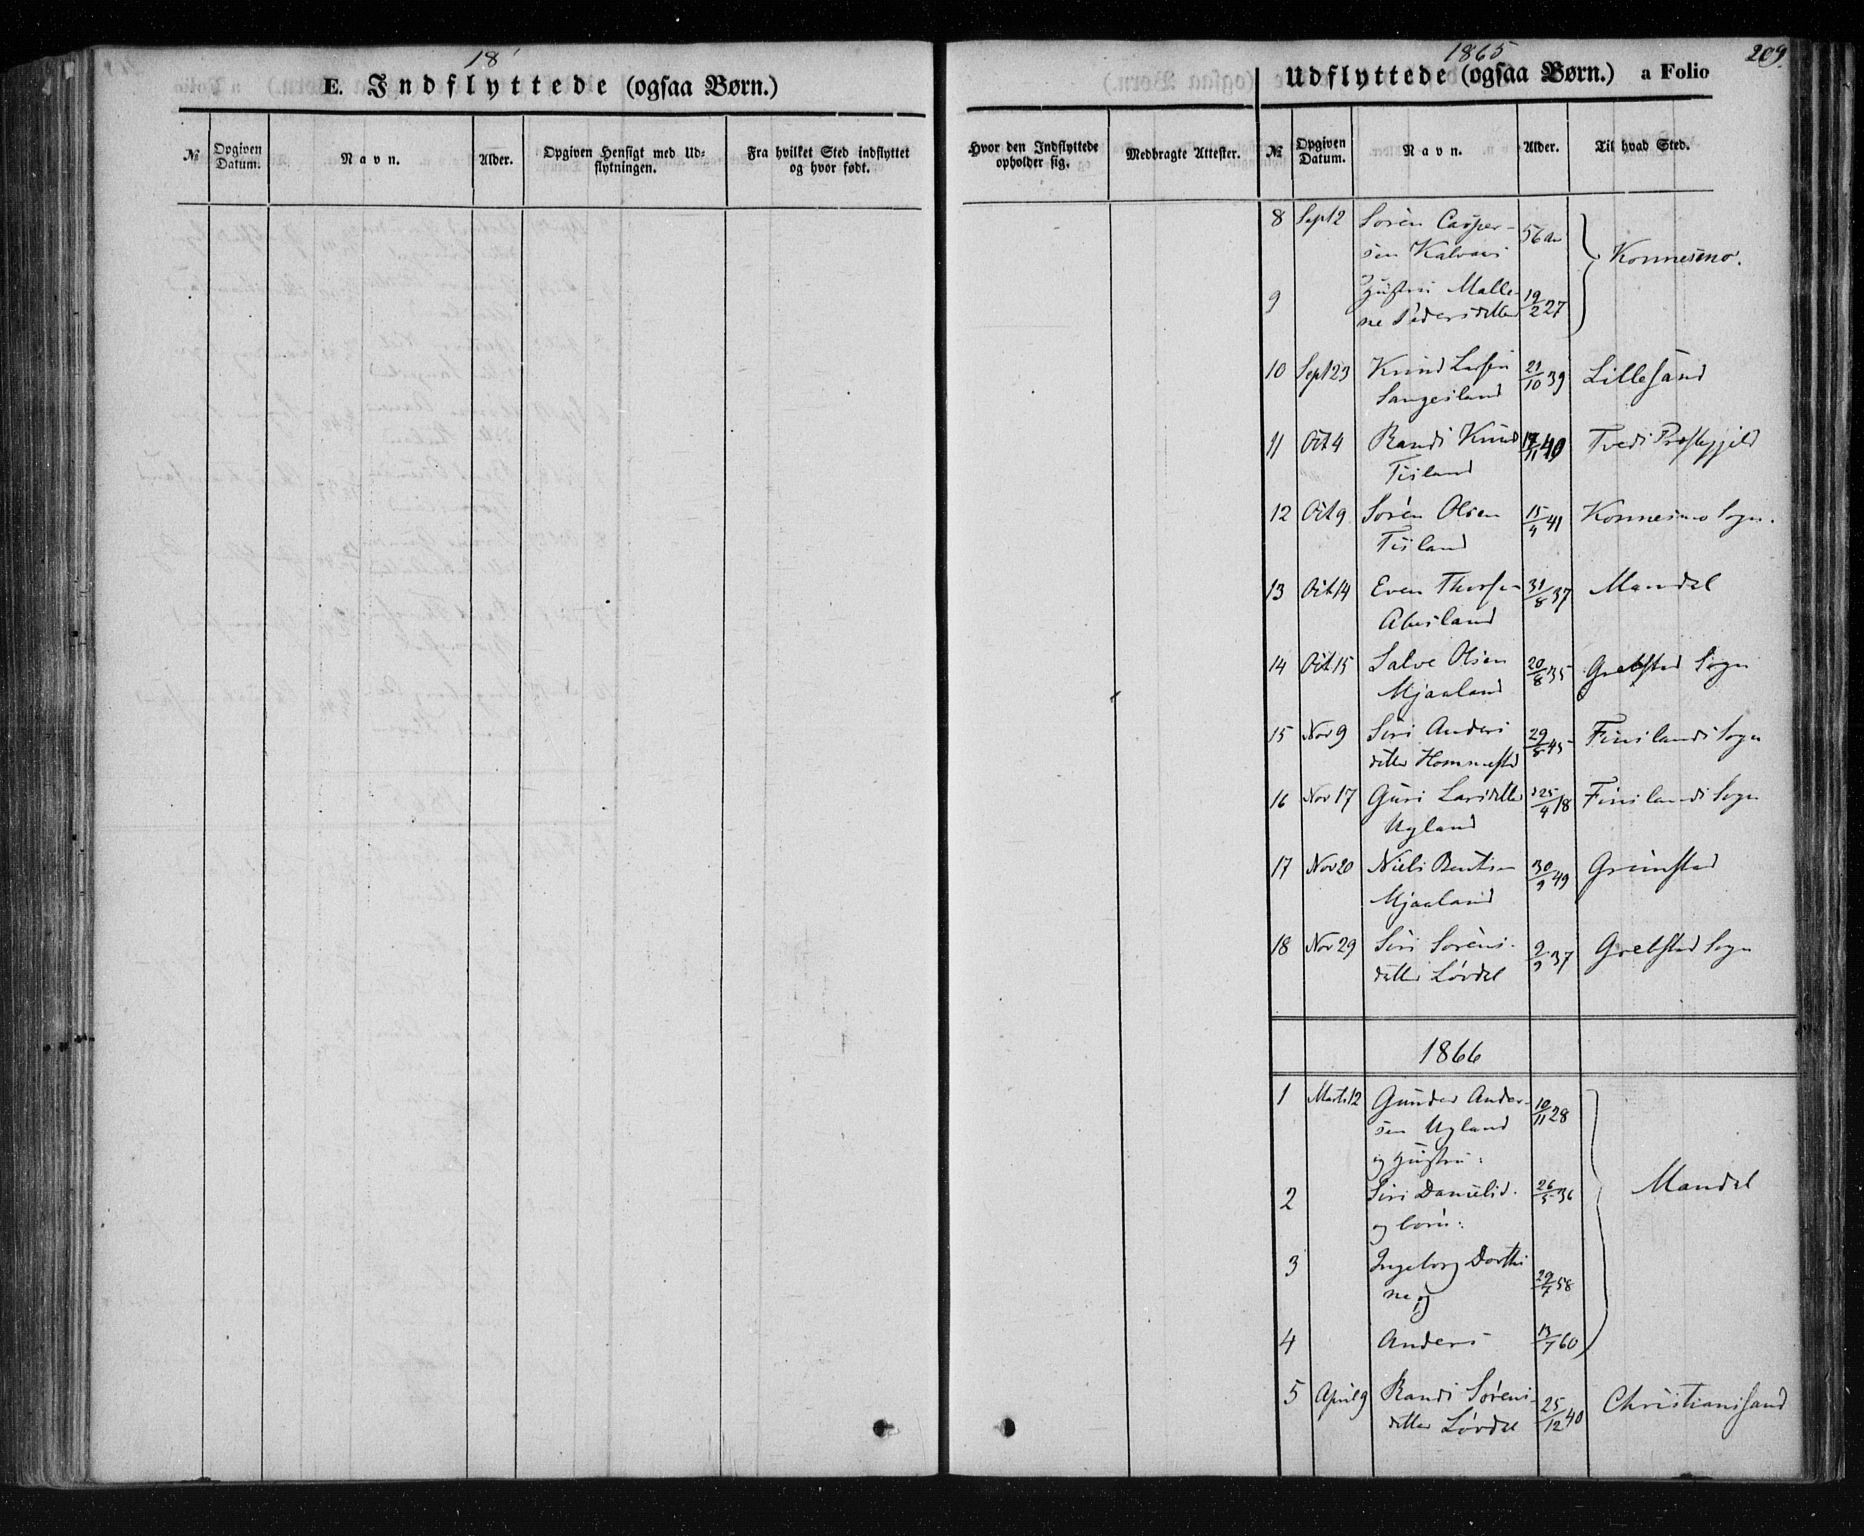 18
E. Indflyttede (ogsaa Børn.)
№ Opgiven Datum. Navn. Alder. Opgiven Hensigt med Udflytningen. Fra hvilket Sted indflyttet og hvor født.
1865
209.
Udflyttede (ogsaa Børn.) a Folio
Hvor den Indflyttede opholder sig. Medbragte Attester. № Opgiven Datum. Navn. Alder. Til hvad Sted.
8 Sept 12 Soren Casper-
sen Kalvaas 56 Konnesmo.
9 Hustru Malle-
ne Pedersdatter 19/2 27
10 Sept 23 Knud
21/10 39 Lillesand
11 Oct 4 Randi Knud
Tisland 17/11 40 Tvedt Præstegjeld
12 Oct 9 Soren Olsen
Tisland 15/4 41 Konnesmo Sogn.
13 Oct 14 Even
Abusland 31/8 37 Mandal
14 Oct 15 Salve Olsen
Mjaaland 20/8 35 Grebstad Sogn
15 Nov 9 Siri Anders
datter Hommestad 29/8 45 Finslands Sogn
16 Nov 17 Guri Larsdatter
Ugland 25/4 18 Finslands Sogn
17 Nov 20 Niels Bentsen
Mjaaland 30/9 49 Grimstad
18 Nov 29 Siri Sorens-
datter Løvdal 9/9 37 Grebstad Sogn
1866
1 Marts 12 Gunder Ander-
sen Ugland 10/11 28
og Hustru:
2 Siri Danielsd. 26/5 36 Mandal
og børn:
3 Ingeborg Dorthi
ne og 29/7 58
4 Anders 13/7 60
5 April 9 Randi Sørens-
datter Løvdal 25/12 40 Christianssand